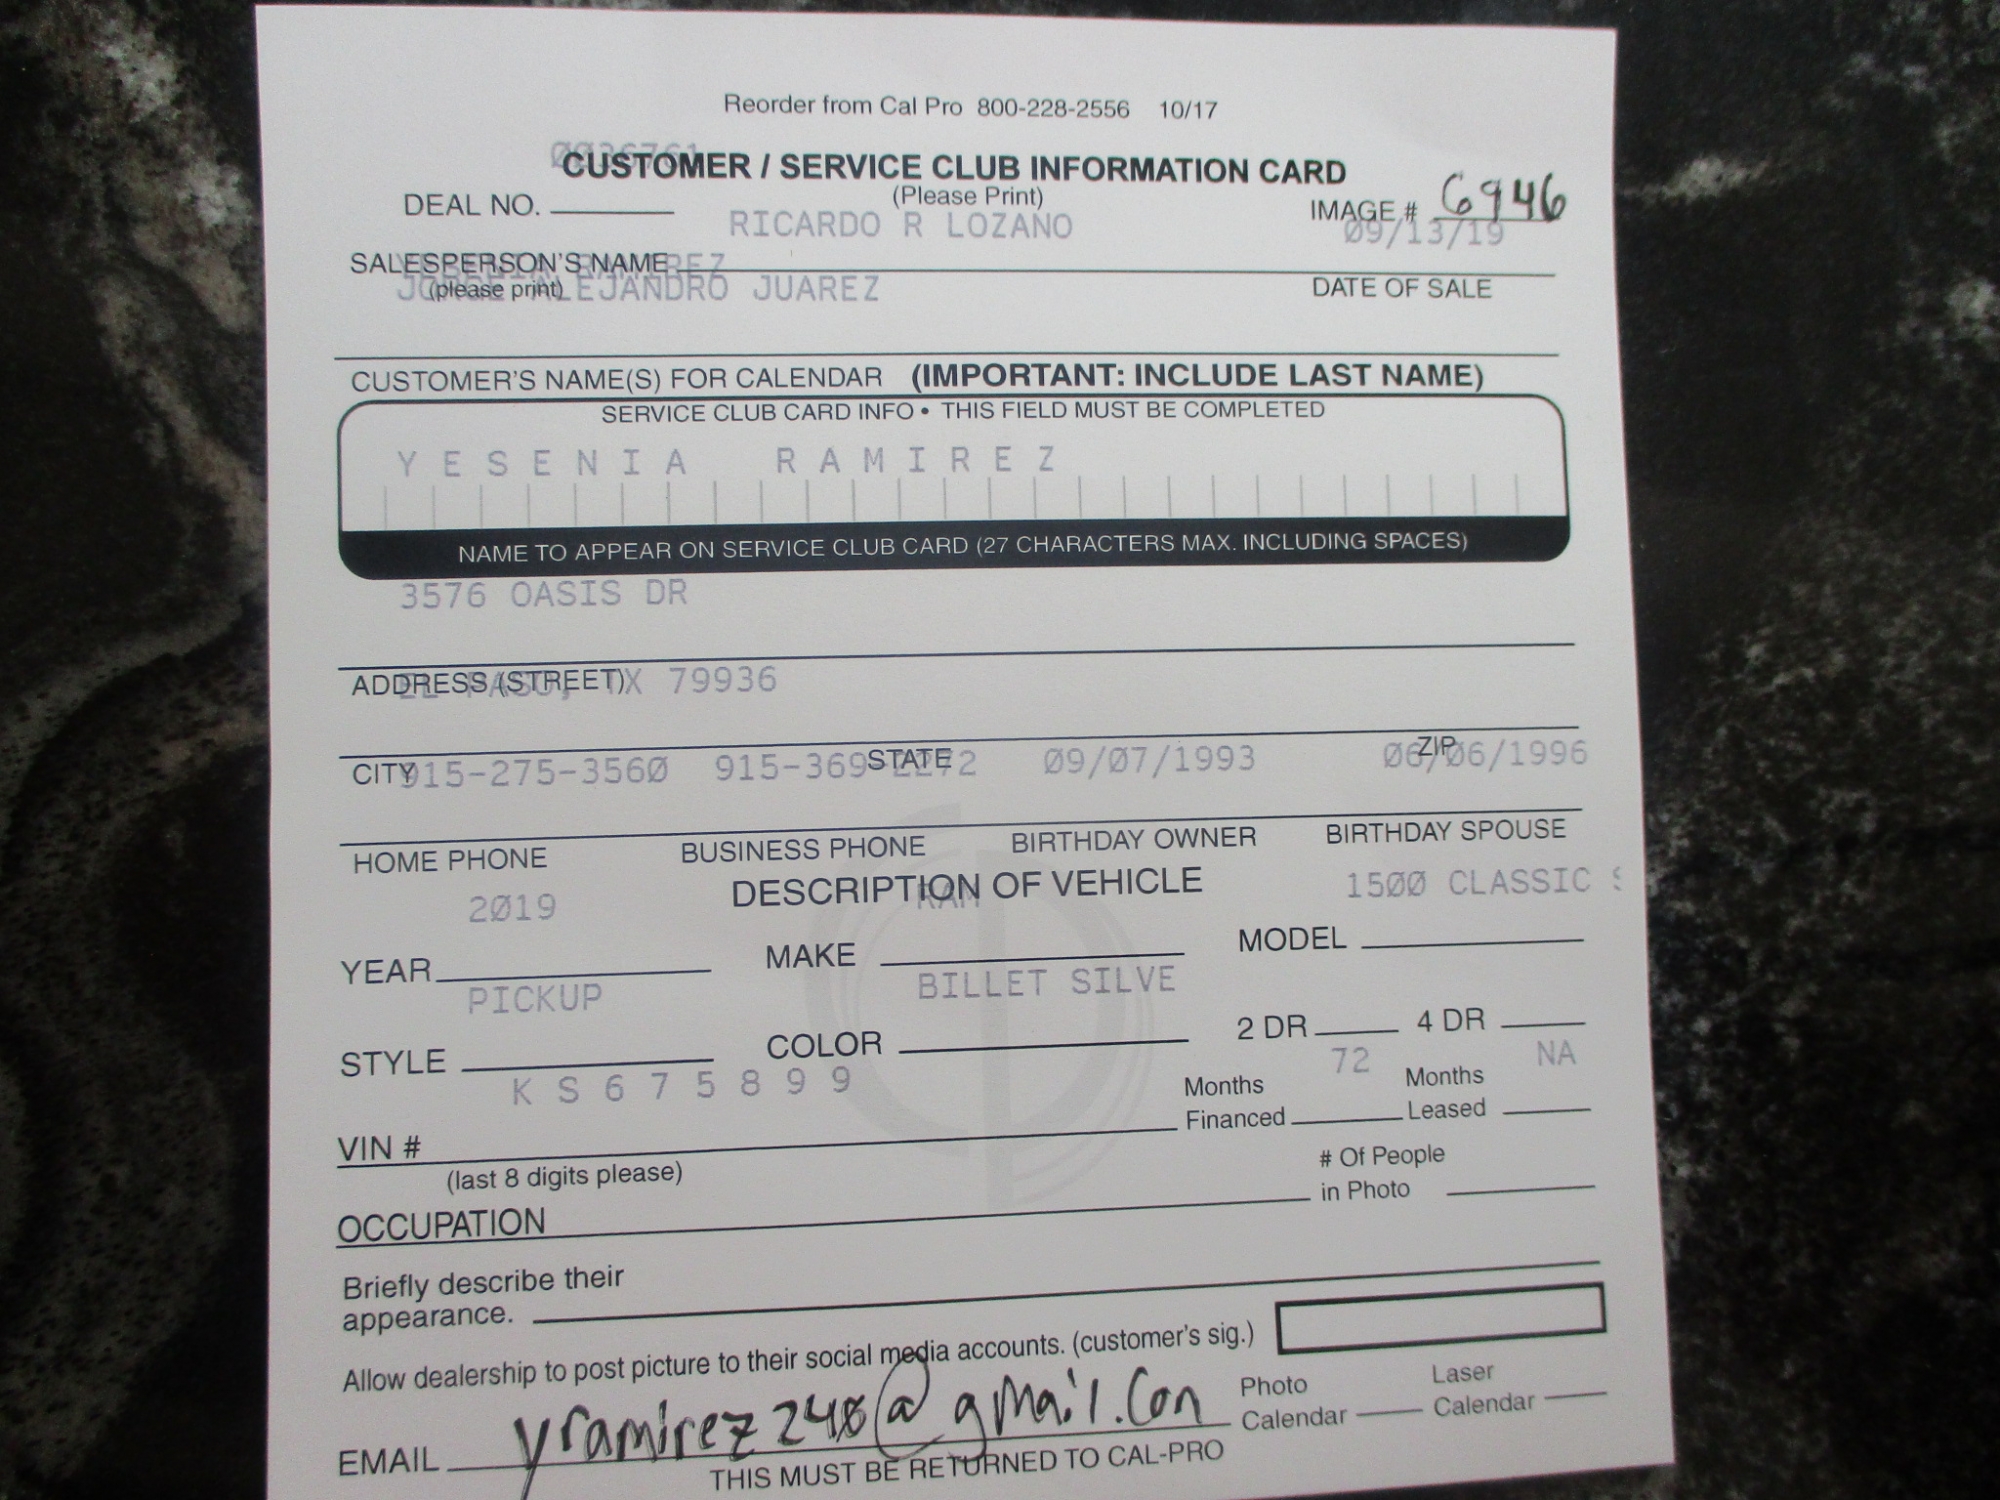 Reorder from Cal Pro 800-228-2556 10/17
0036761
CUSTOMER / SERVICE CLUB INFORMATION CARD
(Please Print)
DEAL NO.
IMAGE # 6946
RICARDO R LOZANO
09/13/19
SALESPERSON'S NAME
YESENIA RAMIREZ
(please print)
ALEJANDRO JUAREZ
DATE OF SALE
CUSTOMER'S NAME(S) FOR CALENDAR (IMPORTANT: INCLUDE LAST NAME)
SERVICE CLUB CARD INFO • THIS FIELD MUST BE COMPLETED
YESENIA RAMIREZ
NAME TO APPEAR ON SERVICE CLUB CARD (27 CHARACTERS MAX. INCLUDING SPACES)
3576 OASIS DR
ADDRESS (STREET)
EL PASO, TX 79936
CITY STATE ZIP
915-275-3560 915-369-2272 09/07/1993 06/06/1996
HOME PHONE BUSINESS PHONE BIRTHDAY OWNER BIRTHDAY SPOUSE
DESCRIPTION OF VEHICLE
2019 RAM 1500 CLASSIC
YEAR MAKE MODEL
PICKUP BILLET SILVE
STYLE COLOR 2 DR 4 DR
KS675899 72 NA
VIN # Months Financed Months Leased
(last 8 digits please)
OCCUPATION # Of People in Photo
Briefly describe their
appearance.
Allow dealership to post picture to their social media accounts. (customer's sig.)
EMAIL yramirez248@gmail.Con Photo Calendar Laser Calendar
THIS MUST BE RETURNED TO CAL-PRO